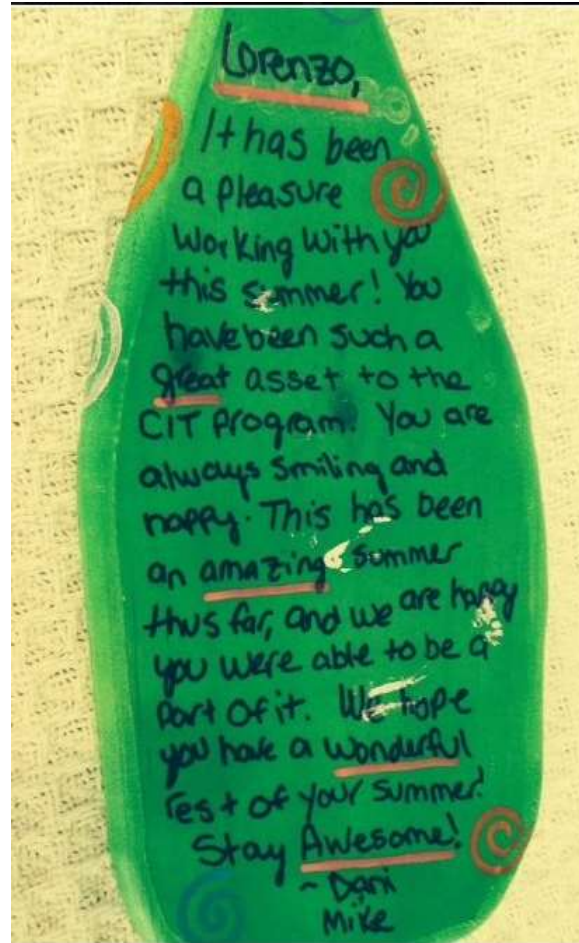 Lorenzo,
It has been
a pleasure
working with you
this summer! You
have been such a
great asset to the
CIT Program. You are
always smiling and
happy. This has been
an amazing summer
thus far, and we are happy
you were able to be a
part of it. We hope
you have a wonderful
rest of your summer!
Stay Awesome!
~ Dani
Mike